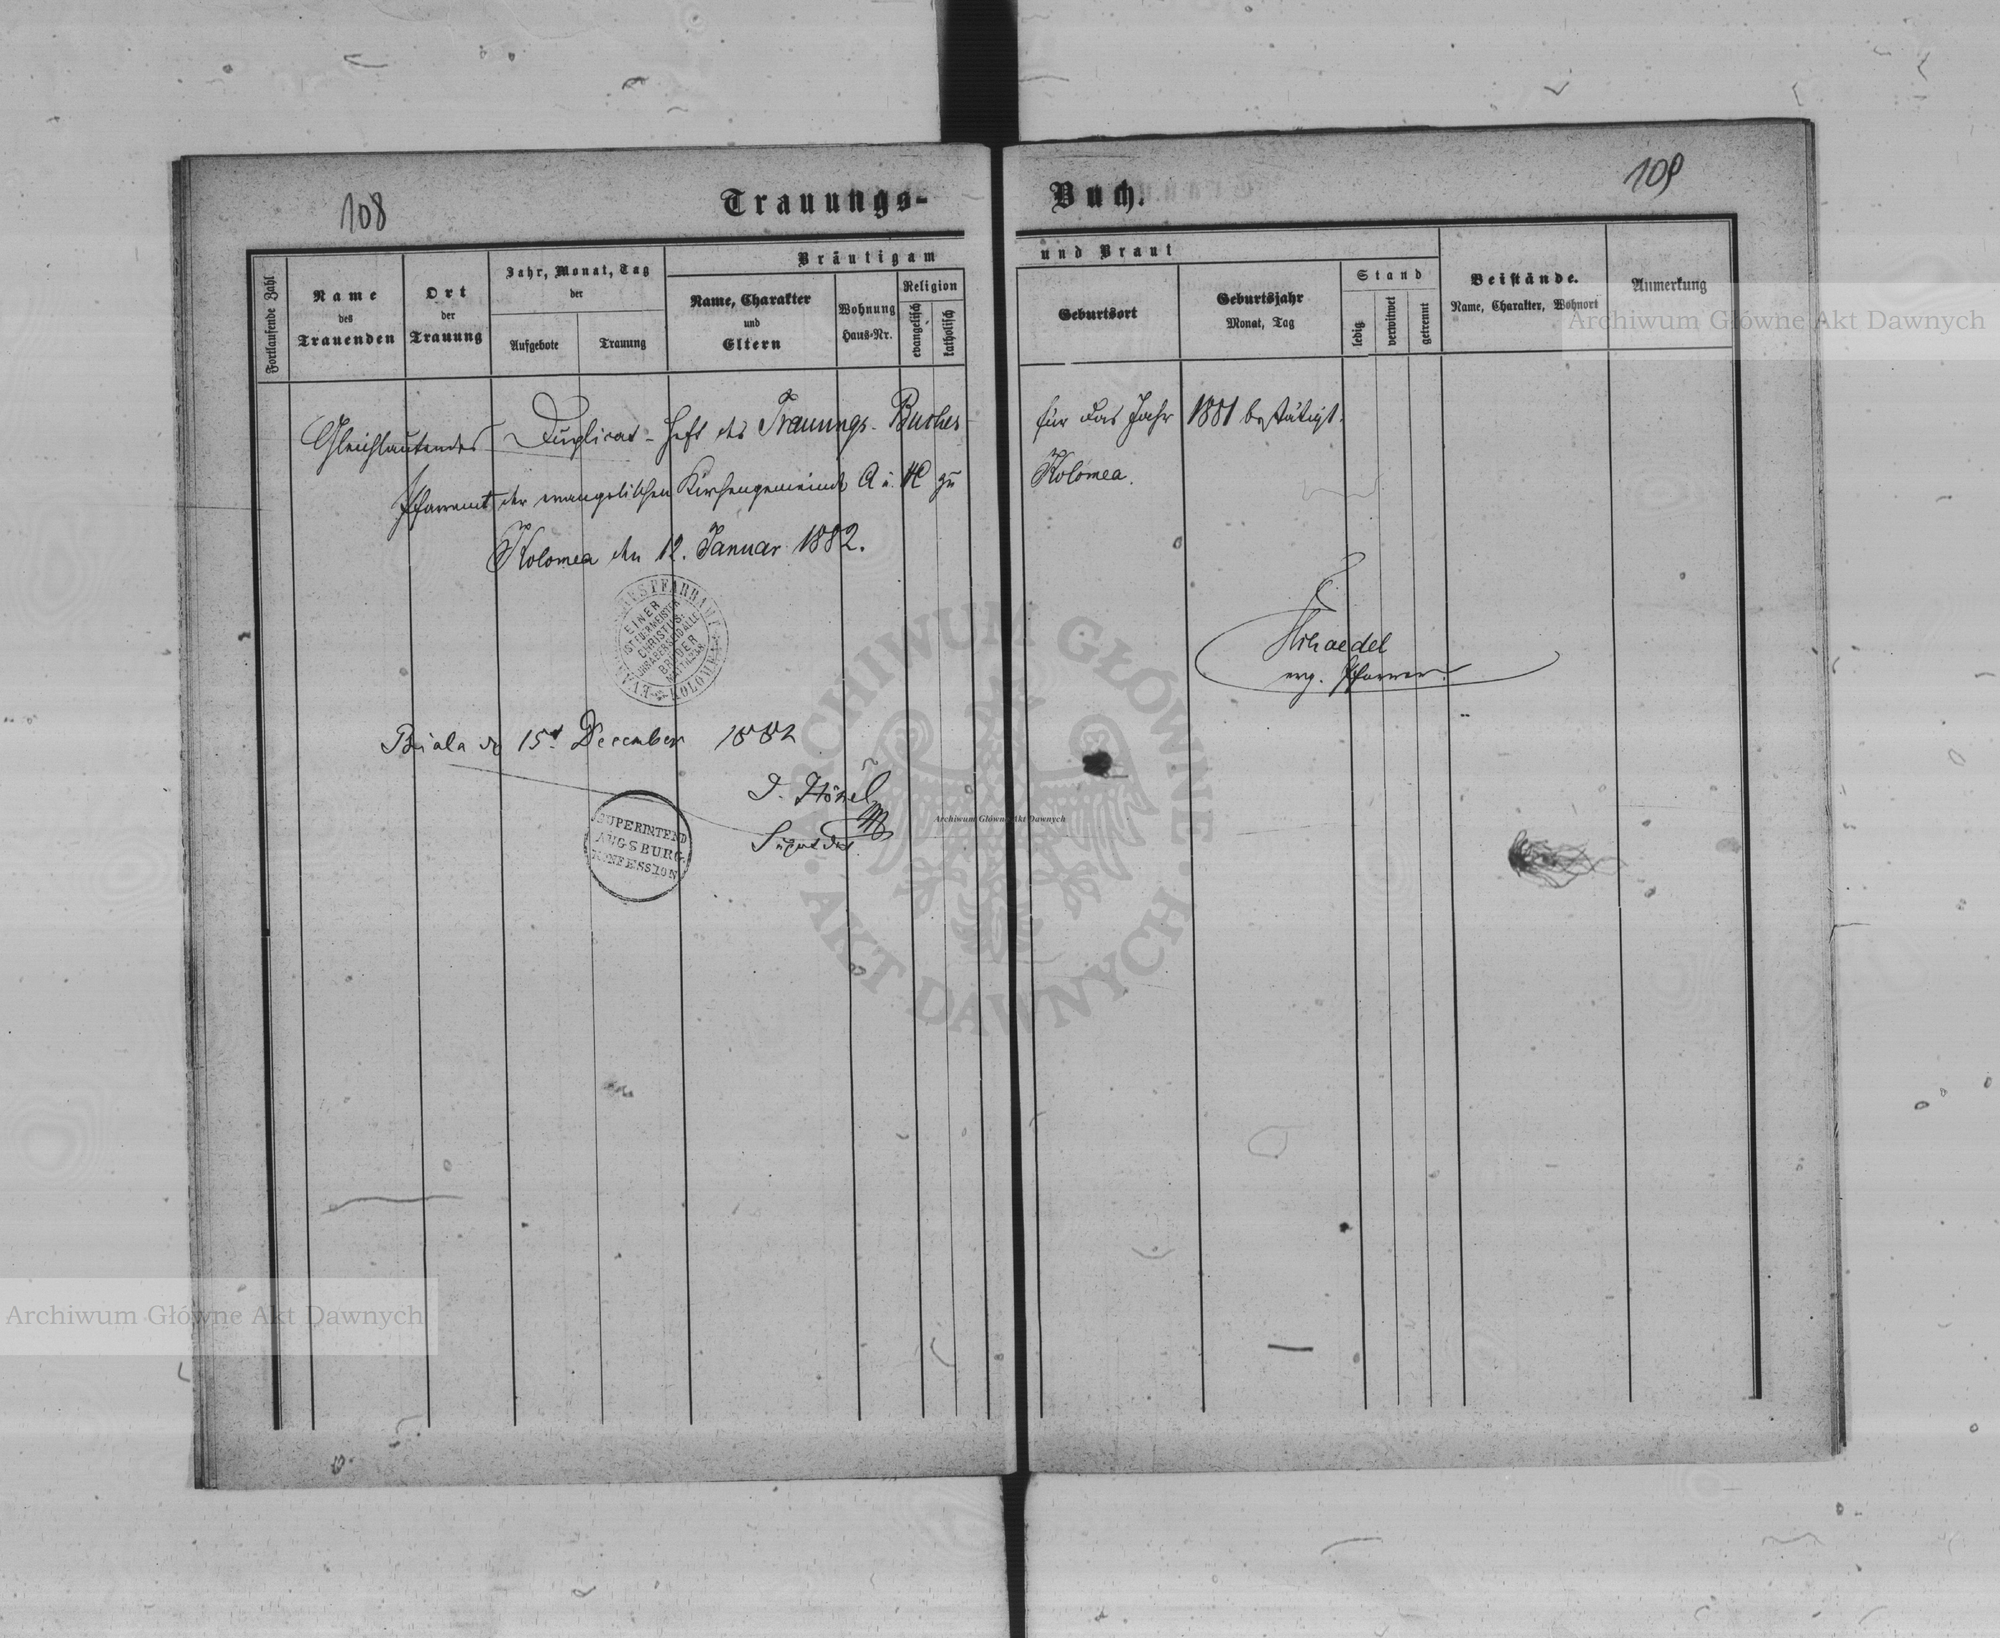 108
109
Trauungs-Buch.
Fortlaufende Zahl
Name
des
Trauenden
Ort
der
Trauung
Jahr, Monat, Tag
der
Aufgebote
Trauung
Bräutigam und Braut
Name, Charakter
und
Eltern
Wohnung
Haus-Nr.
Religion
evangelisch
katholisch
Geburtsort
Geburtsjahr
Monat, Tag
Stand
ledig
verwitwet
getrennt
Beistände.
Name, Charakter, Wohnort
Anmerkung
Gleichlautendes Duplicat-Heft des Trauungs-Buches für das Jahr 1881 bestätigt.
Pfarramt der evangelischen Kirchengemeinde A u. H zu Kolomea.
Kolomea den 12. Januar 1882.
EINER
IST EUER MEISTER
CHRISTUS:
IHR ABER SEID ALLE
BRÜDER
KOLOMEA
evg. Pfarrer.
Biala 15 December 1882
SUPERINTEND
AUGSBURG.
KONFESSION
ARCHIWUM GŁÓWNE
AKT DAWNYCH
Archiwum Główne Akt Dawnych
Archiwum Główne Akt Dawnych
Archiwum Główne Akt Dawnych